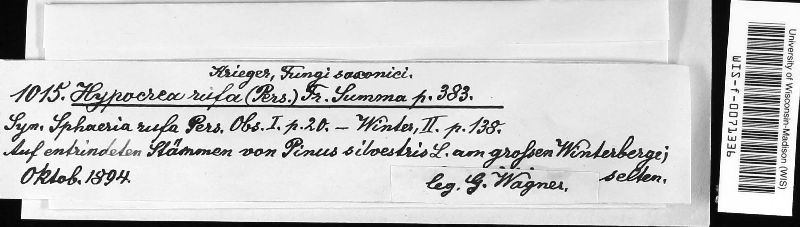 Krieger, Fungi saxonici.
1015. Hypocrea rufa (Pers.) Fr. Summa p. 383.
Syn. Sphaeria rufa Pers. Obs. I. p. 20. – Winter, II. p. 138.
Auf entrindeten Stämmen von Pinus silvestris L. am großen Winterberge;
Oktob. 1894. leg. G. Wagner. selten.
University of Wisconsin-Madison (WIS)
WIS-f-0071336